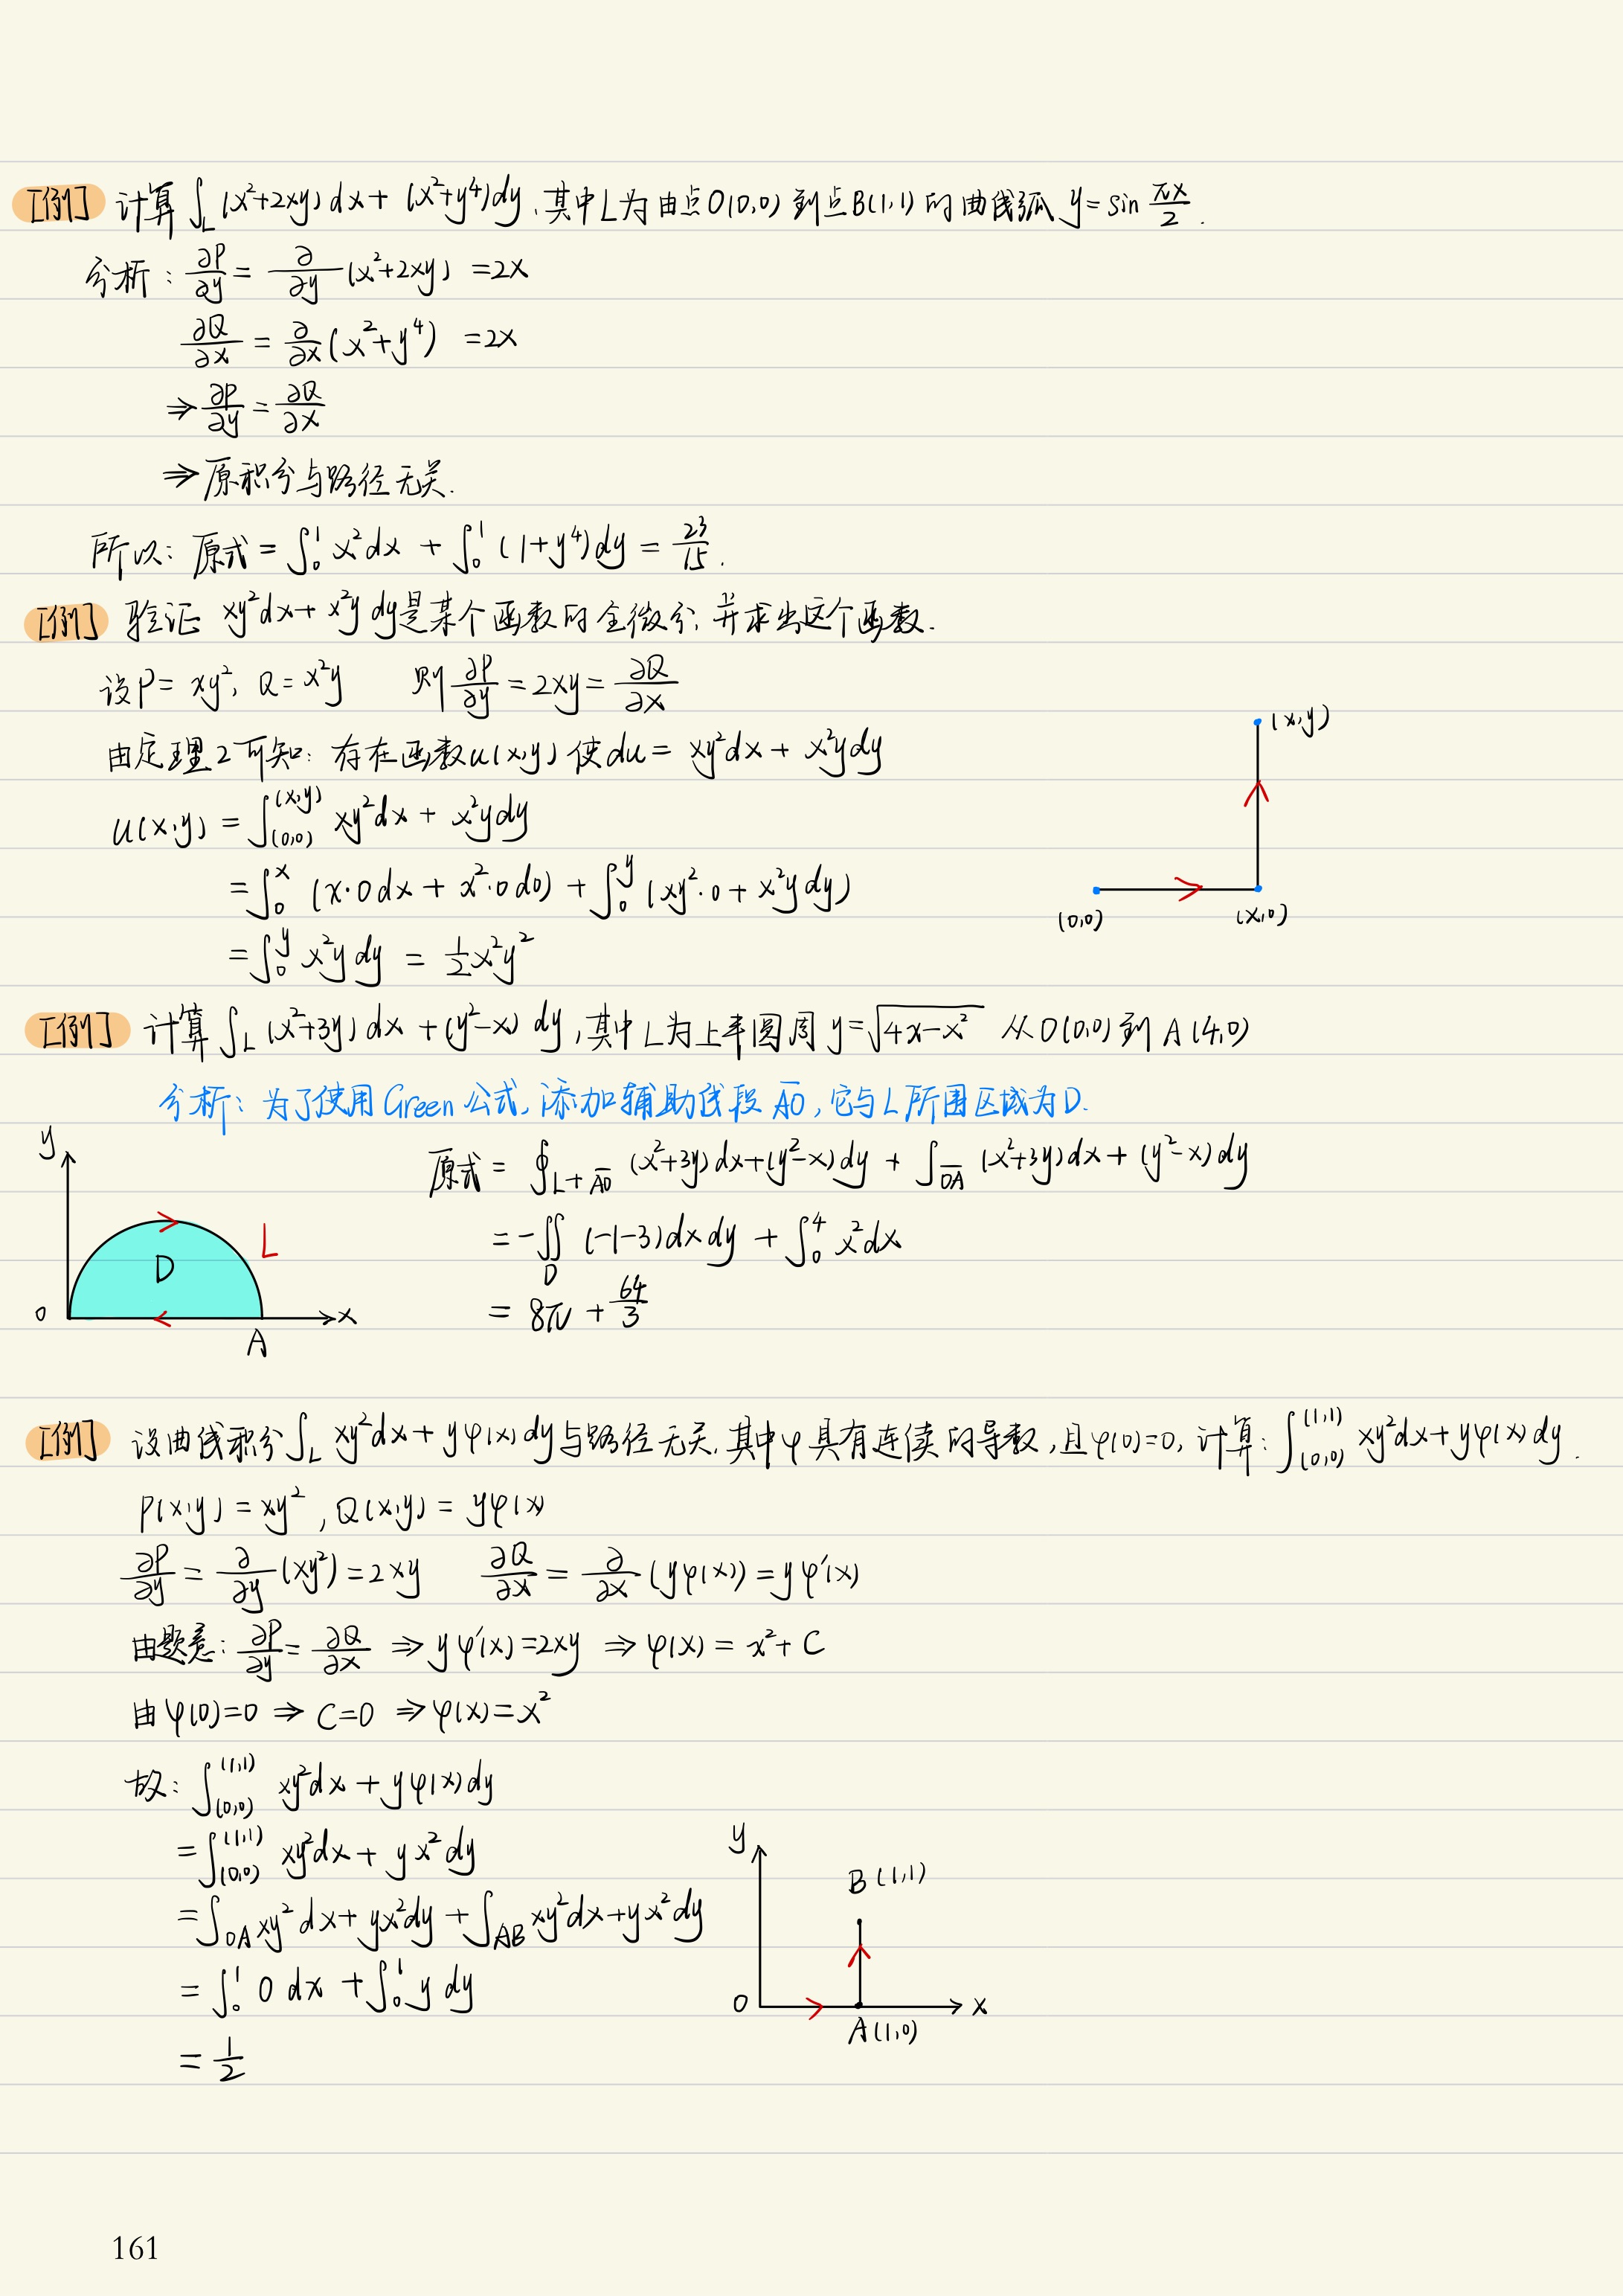 [例] 计算 ∫_L (x²+2xy)dx + (x²+y⁴)dy, 其中L为由点O(0,0)到点B(1,1)的曲线弧 y=sin πx/2.
分析: ∂P/∂y = ∂/∂y (x²+2xy) =2x
∂Q/∂x = ∂/∂x (x²+y⁴) =2x
⇒ ∂P/∂y = ∂Q/∂x
⇒ 原积分与路径无关.
所以: 原式 = ∫₀¹ x²dx + ∫₀¹ (1+y⁴)dy = 23/15.
[例] 验证 xy²dx + x²y dy是某个函数的全微分, 并求出这个函数.
设P= xy², Q= x²y 则 ∂P/∂y = 2xy = ∂Q/∂x
由定理2可知: 存在函数u(x,y) 使du = xy²dx + x²ydy
u(x,y) = ∫_(0,0)^(x,y) xy²dx + x²ydy
= ∫₀ˣ (x·0dx + x²·0d0) + ∫₀ʸ (xy²·0 + x²ydy)
= ∫₀ʸ x²y dy = ½x²y²
(x,y)
(0,0) (x,0)
[例] 计算 ∫_L (x²+3y)dx + (y²-x)dy, 其中L为上半圆周 y=√(4x-x²) 从O(0,0)到A(4,0)
分析: 为了使用Green公式, 添加辅助线段 A̅O̅, 它与L所围区域为D.
原式 = ∮_(L+A̅O̅) (x²+3y)dx+(y²-x)dy + ∫_O̅A̅ (x²+3y)dx + (y²-x)dy
= -∬_D (-1-3)dxdy + ∫₀⁴ x²dx
= 8π + 64/3
y
L
D
0 x
A
[例] 设曲线积分 ∫_L xy²dx + yφ(x)dy与路径无关, 其中φ具有连续的导数, 且φ(0)=0, 计算: ∫_(0,0)^(1,1) xy²dx+yφ(x)dy.
P(x,y) = xy², Q(x,y) = yφ(x)
∂P/∂y = ∂/∂y (xy²) = 2xy ∂Q/∂x = ∂/∂x (yφ(x)) = yφ′(x)
由题意: ∂P/∂y = ∂Q/∂x ⇒ yφ′(x)=2xy ⇒ φ(x) = x²+C
由φ(0)=0 ⇒ C=0 ⇒ φ(x)=x²
故: ∫_(0,0)^(1,1) xy²dx + yφ(x)dy
= ∫_(0,0)^(1,1) xy²dx + yx²dy
= ∫_OA xy²dx+yx²dy + ∫_AB xy²dx+yx²dy
= ∫₀¹ 0 dx + ∫₀¹ y dy
= 1/2
y
B(1,1)
0 x
A(1,0)
161